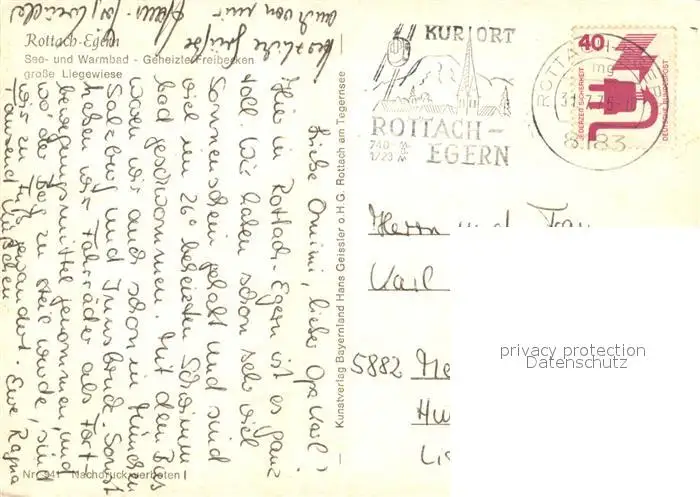 Rottach-Egern
See- und Warmbad - Geheizte Freibecken
große Liegewiese
herzliche Grüße
auch von mir
Liebe Omimi, lieber Opa Karl!
Hier in Rottach-Egern ist es ganz
toll. Wir haben schon sehr viel
Sonnenschein gehabt und sind
viel im 26° beheizten Schwimm
bad geschwommen. Mit dem Bus
waren wir auch schon in München
Salzburg und Innsbruck. Sonst
haben wir Fahrräder als Fort-
bewegungsmittel genommen, und
wo der Berg zu steil wurde, sind
wir zu Fuß gewandert.
Tausend Küßchen Eure Ragna
Nr. 941 Nachdruck verboten
Kunstverlag Bayermland Hans Geissler o.H.G. Rottach am Tegernsee
KURORT
ROTTACH-
EGERN
740-
1723 m
ROTTACH-
8183
40
JEDERZEIT SICHERHEIT
DEUTSCHE BUNDESPOST
Herrn und Frau
Karl
5882 Me
Hu
privacy protection
Datenschutz